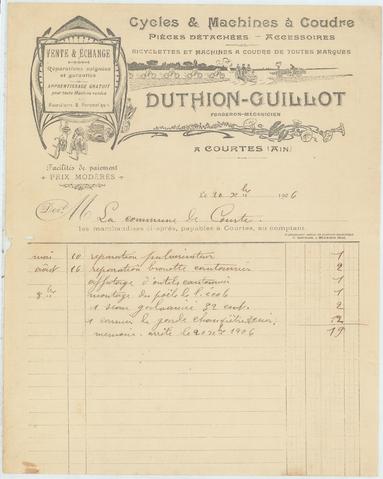 Cycles & Machines à Coudre
PIÈCES DÉTACHÉES — ACCESSOIRES
BICYCLETTES ET MACHINES A COUDRE DE TOUTES MARQUES
VENTE & ÉCHANGE
Réparations soignées
et garanties
APPRENTISSAGE GRATUIT
pour toute Machine vendue
DUTHION-GUILLOT
FORGERON-MÉCANICIEN
A COURTES (AIN)
Facilités de paiement
PRIX MODÉRÉS
Le 20 Xbre 1906
Doit M La commune de Courte
les marchandises ci-après, payables à Courtes, au comptant.
mai 10 reparation pulverisateur 1
août 16 reparation brouette cantonnier 2
affutage d'outils cantonnier 1
8bre montage du poële 1
1 seau galvanisé 32 2
1 garde champêtre 12
memoire arrête le 20 Xbre 1906 19